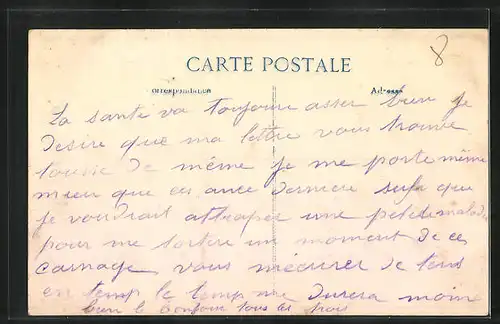 8
CARTE POSTALE
Correspondance Adresse
La santé va toujours asser bien je
desire que ma lettre vous trouve
tousse de même je me porte même
mieu que ces anee derniere sufa que
je voudrait attraper une petite malad
pour me sortir un moment de ce
carnage vous mécrirer de tens
en temp le temp me durera moin
bien le bonjour tous les trois